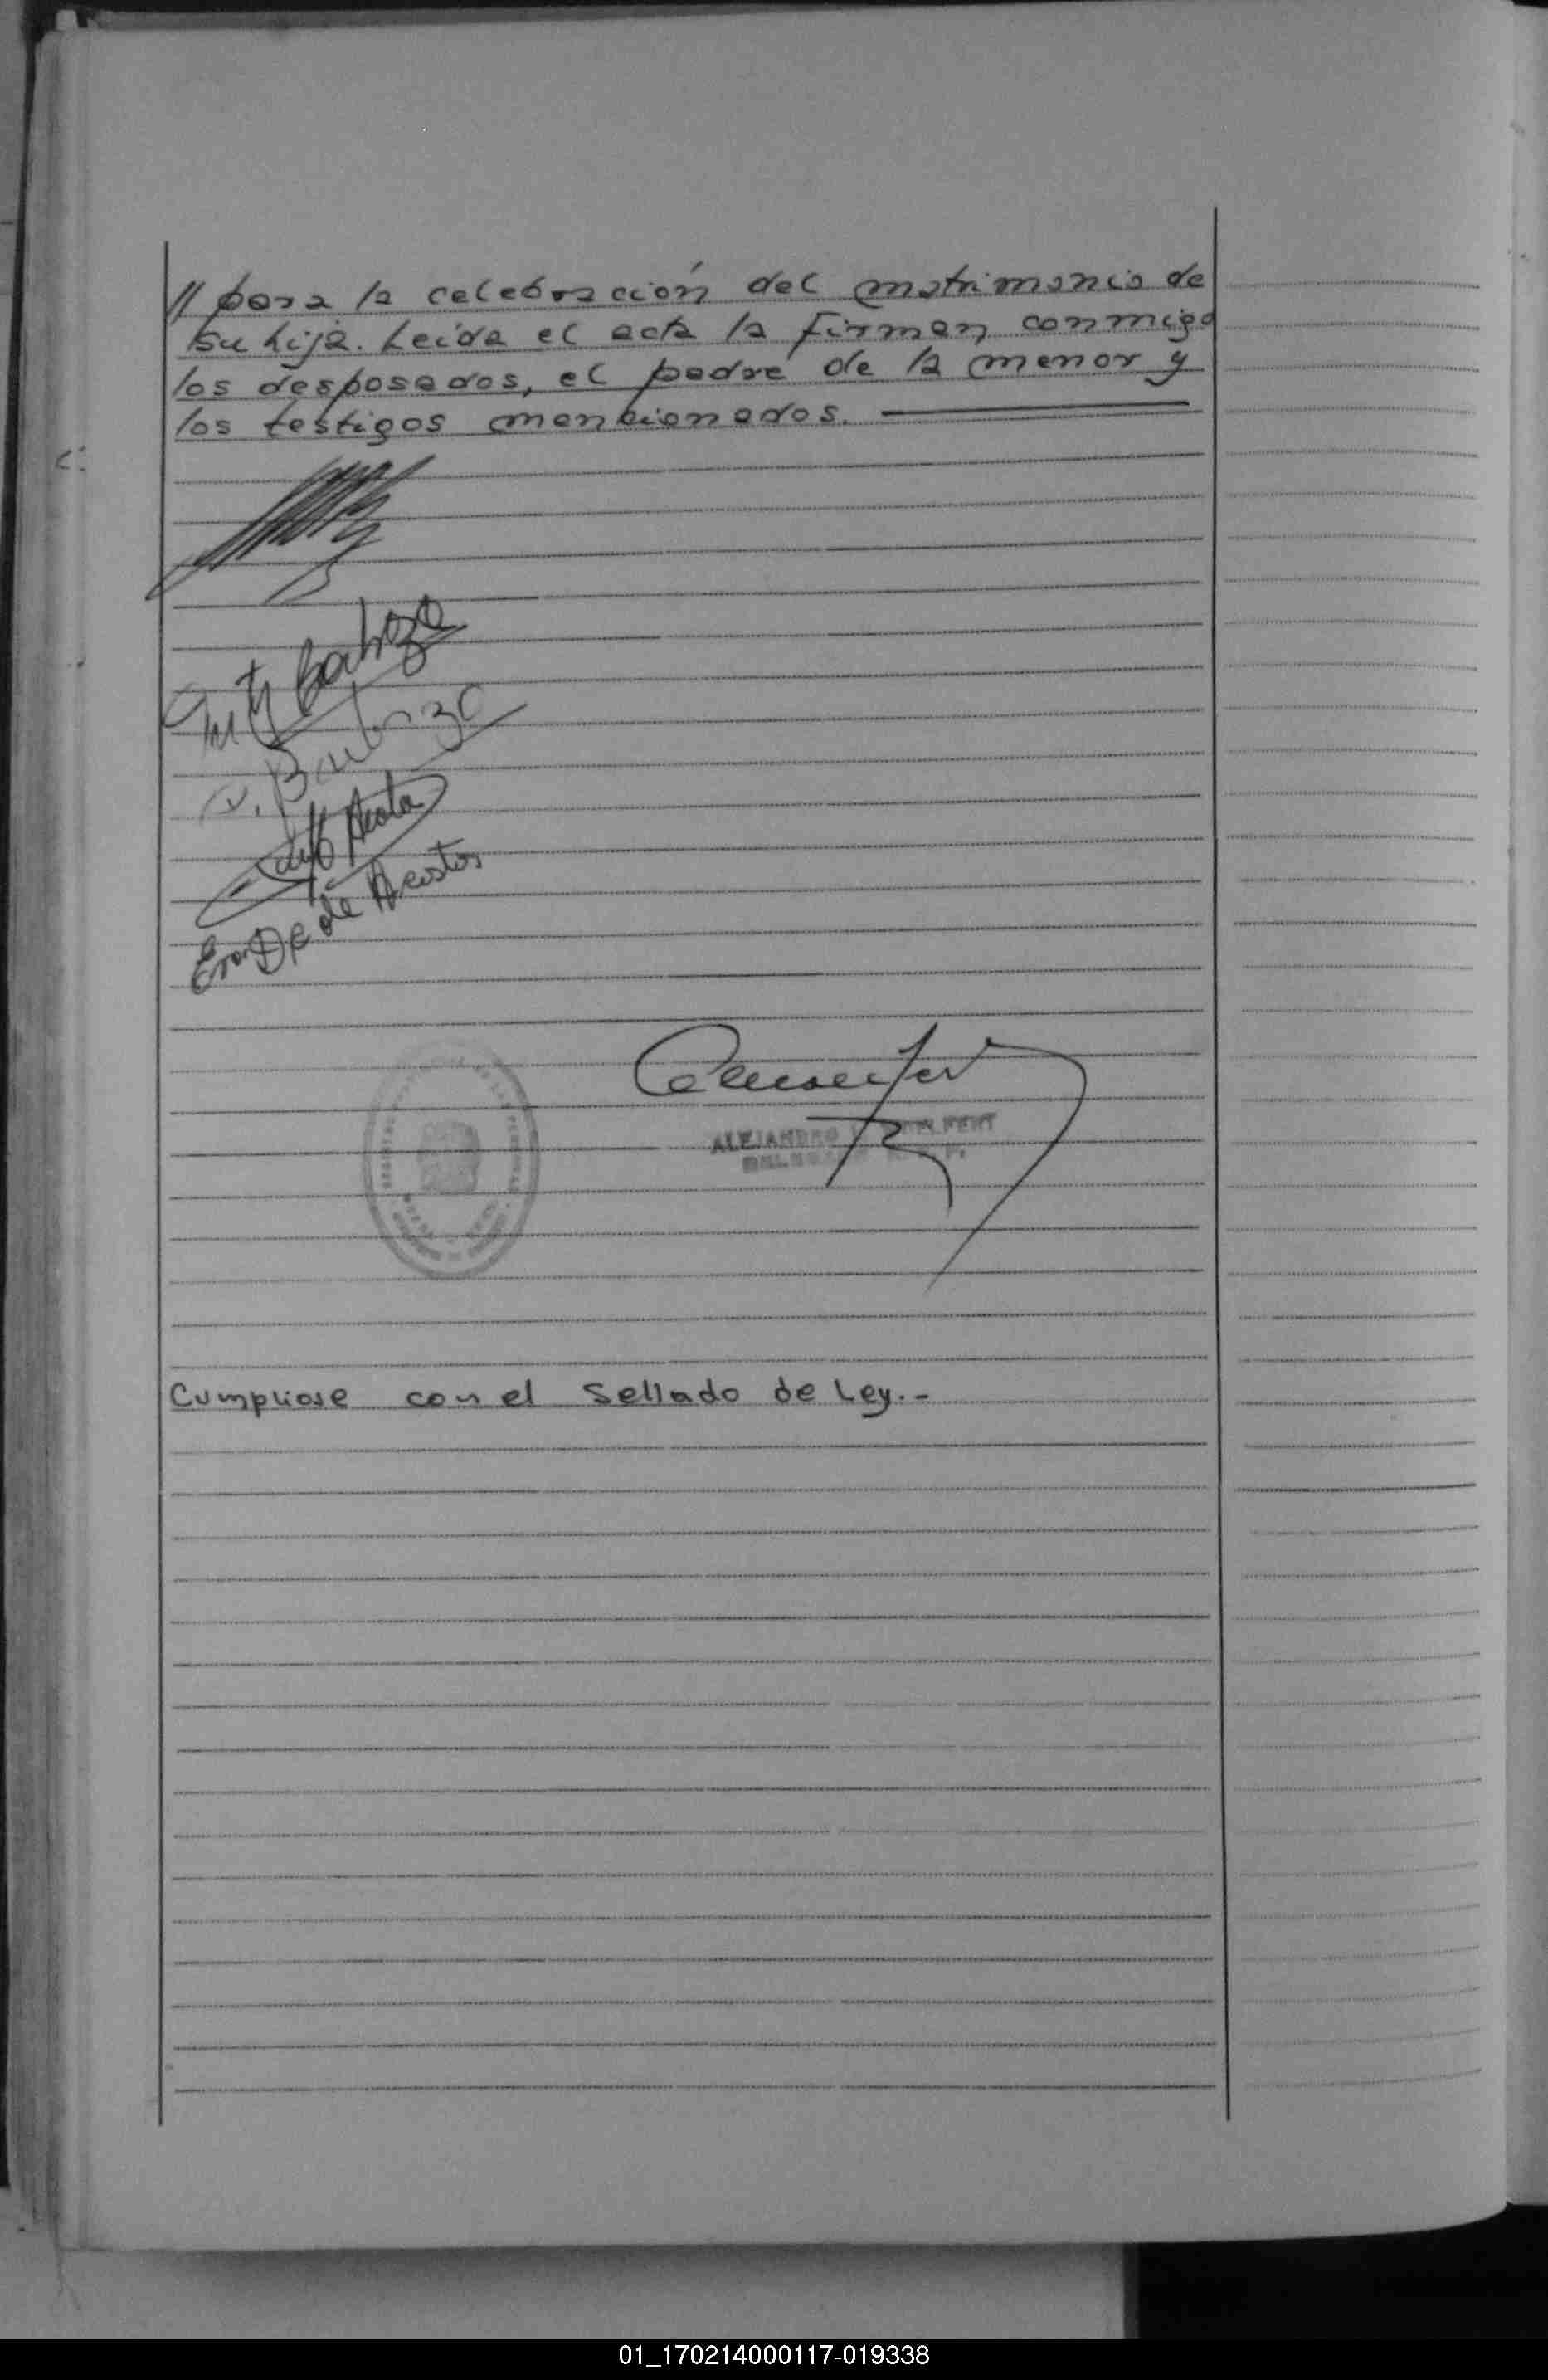 // para la celebración del matrimonio de
su hija. Leída el acta la firman conmigo
los desposados, el padre de la menor y
los testigos mencionados.
Barboza
Acosta
de Acosta
ALEJANDRO
Cumpliose con el Sellado de Ley.-
01_170214000117-019338